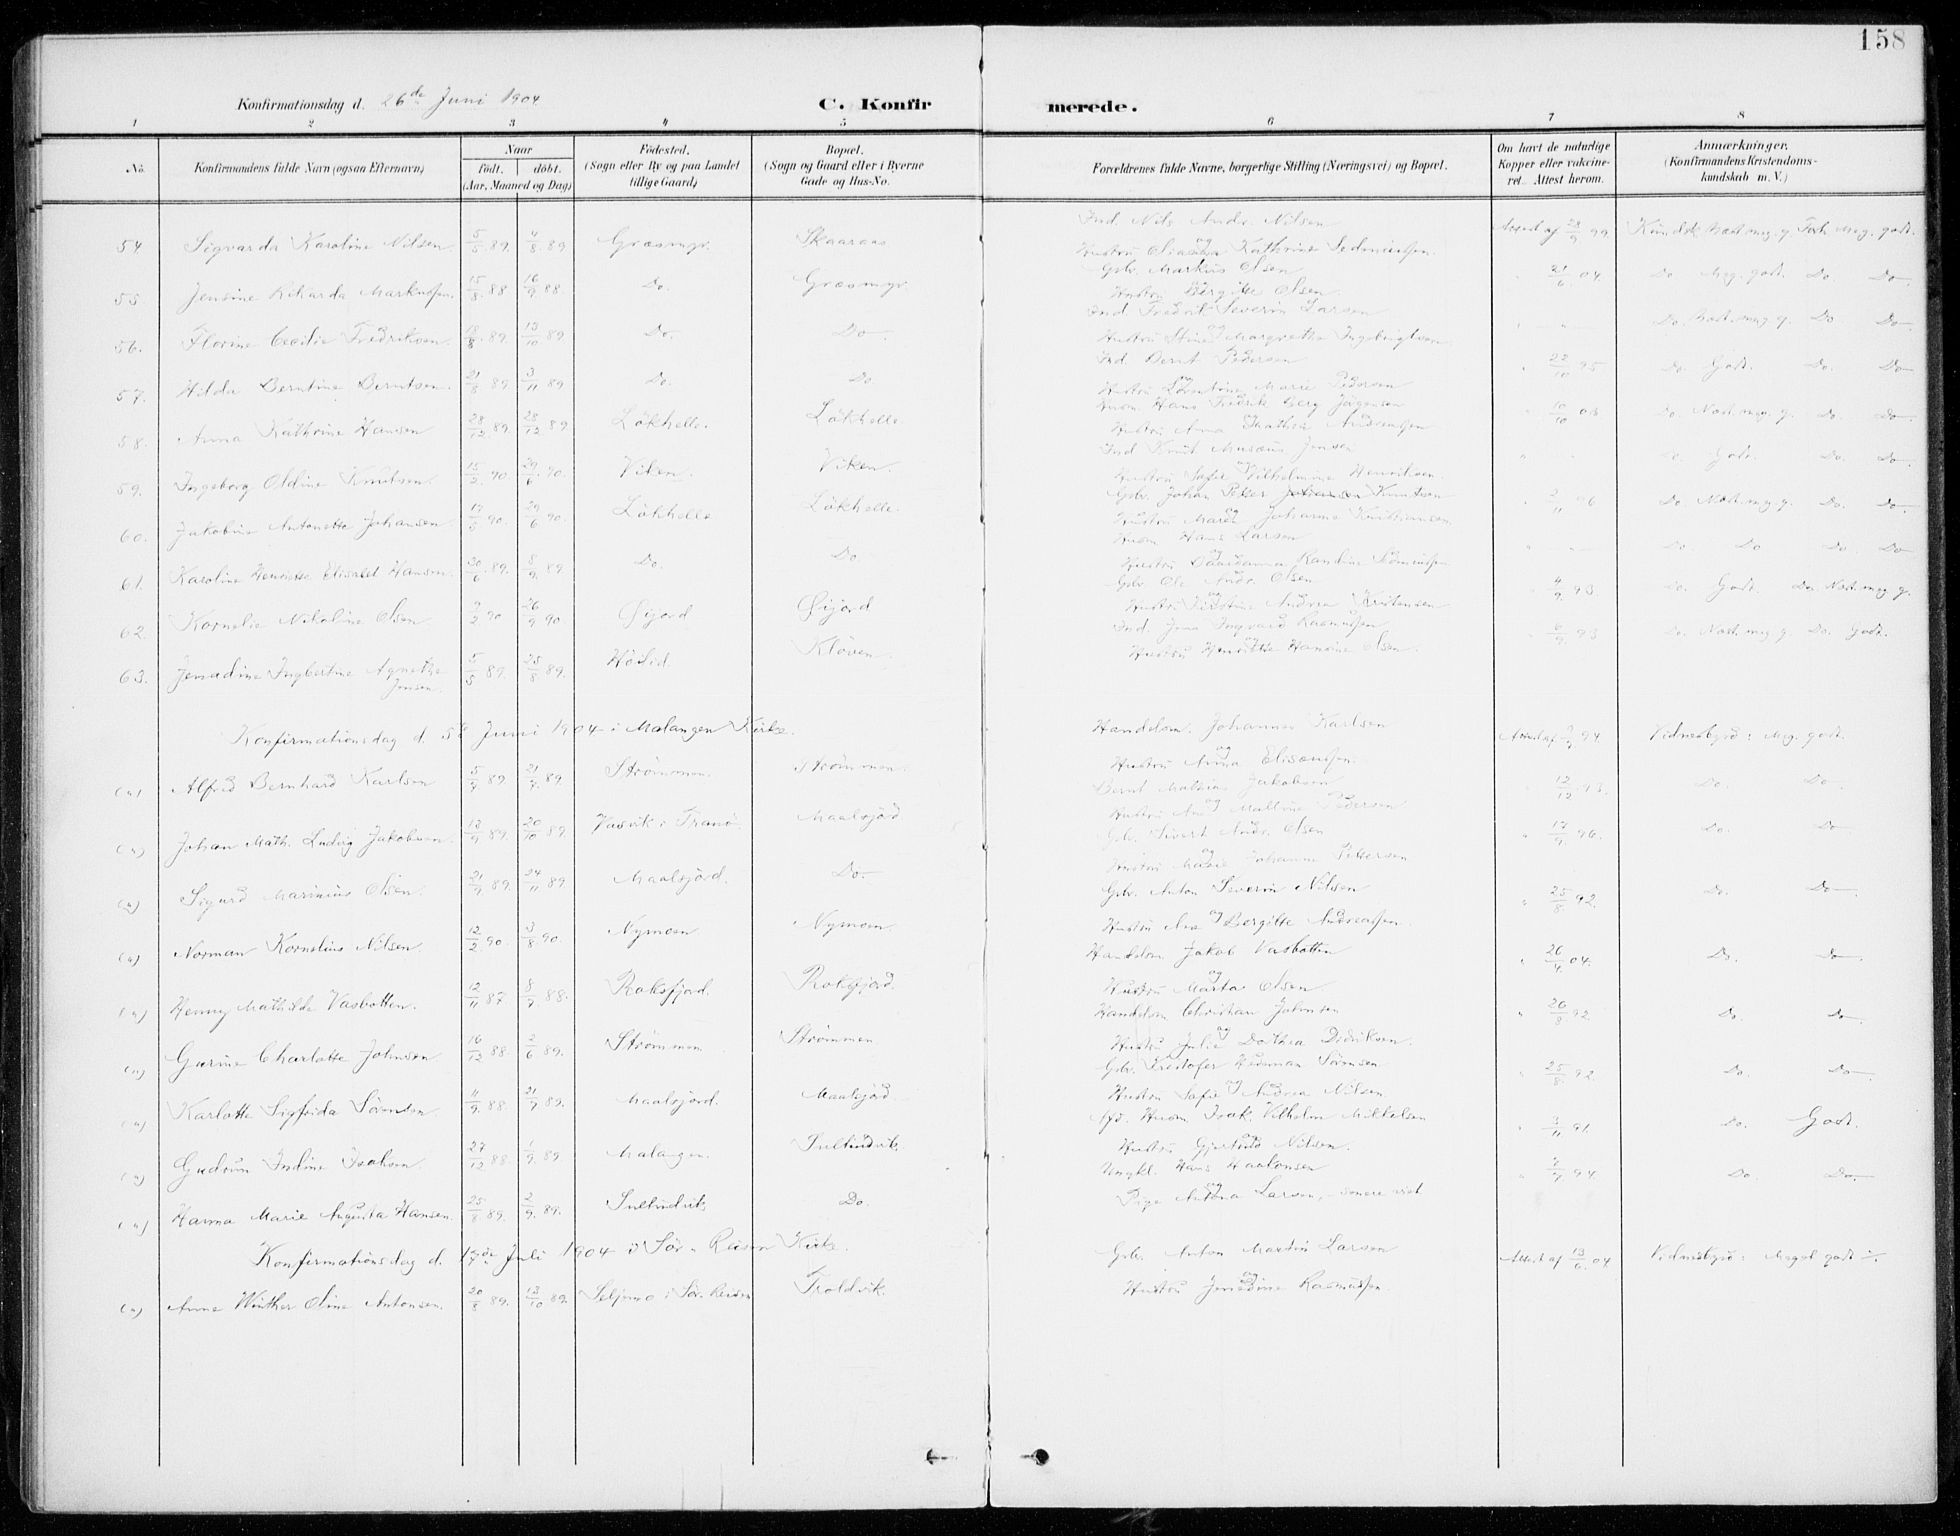 158
Konfirmationsdag d. 26de Juni 1904
C. Konfirmerede.
1 2 3 4 5 6 7 8
No.
Konfirmandens fulde Navn (ogsaa Efternavn)
Naar
födt. döbt.
(Aar, Maaned og Dag)
Födested.
(Sogn eller By og paa Landet tillige Gaard)
Bopæl.
(Sogn og Gaard eller i Byerne Gade og Hus-No.
Forældrenes fulde Navne, borgerlige Stilling (Næringsvei) og Bopæl.
Om havt de naturlige Kopper eller vakcineret. Attest herom.
Anmærkninger.
(Konfirmandens Kristendomskundskab m. V.)
54. Sigvarda Karoline Nilsen 5/5 89. 4/8 89 Græsmyr. Skaaraas Ind. Nils Andr. Nilsen
Attest af 28/9 99. Kundsk. Næst meg. g. Forh. Meg. godt.
55 Jensine Rikarda Markussen 15/8 88 16/9 88. Do. Græsmyr. Gbr. Markus Olsen
Hustru Bergitte Olsen 21/6 04. Do. Meg. godt. Do. Do
56. Florine Cecilie Fredriksen 18/8 89 13/10 89 Do. Do Ind. Fredrik Severin Larsen
Hustru Stine Margrethe Ingebrigtsen Do. Næst. meg g. Do. Do
57. Hilda Berntine Berntsen 21/8 89 3/11 89 Do. Do. Ind. Bernt Pedersen
Hustru Lorentine Marie Pedersen 22/10 95 Do. Godt. Do. Do
58. Anna Kathrine Hansen 28/12 89 28/12 89 Lökhelle. Lökhelle. Husm. Hans Fredrik Berg Jörgensen
10/10 03 Do. Næst. meg. g. Do. Do
59. Ingeborg Oldine Knutsen. 15/2 90 29/6 90. Viken. Viken. Ind. Knut Musæus Jensen
Hustru Sofie Vilhelmine Henriksen. Do. Godt. Do. Do
60. Jakobine Antonette Johansen 17/5 90. 29/6 90. Lökhelle Lökhelle. Gbr. Johan Peter Johansen Knutsen
Hustru Maren Johanna Kristiansen. 2/11 96 Do. Næst meg g. Do. Do
61. Karoline Henrette Elisabet Hansen. 30/6 89. 8/9 89 Do. Do. Husm. Hans Larsen
Do. Do Do. Do
62. Kornelie Nikoline Olsen 9/2 90 26/9 90 Öijord Öijord Gbr. Ole Andr. Olsen
Hustru Kirstine Andrea Kristensen 4/9 93. Do. Godt. Do. Næst. meg g.
63. Jensdine Ingbertine Agnethe Jensen. 5/5 89. 25/8 89. Höilid. Klöven. Ind. Jens Ingvard Rasmussen
Hustru Henriette Hansine Olsen. 6/9 93 Do. Næst. meg g. Do. Godt.
Konfirmationsdag d. 5te Juni 1904 i Malangen Kirke.
(u) Alfred Bernhard Karlsen 5/7 89 21/7 89. Strömmen. Strömmen. Handelsm. Johannes Karlsen
Hustru Anna Eliseussen. Vidnesbyrd: Meg. godt.
(u) Johan Math. Ludvig Jakobsen 13/9 89. 20/10 89. Vasvik i Tranö Maalsfjord Bernt Mathias Jakobsen
12/12 93. Do. Do.
(u) Sigurd Marinius Olsen. 21/9 89. 24/11 89. Maalsfjord. Do. Gbr. Sivert Andr. Olsen
Hustru Marie Johanna Pettersen 17/9 96. Do. Do
(u) Norman Kornelius Nilsen 12/2 90. 3/8 90. Nymoen Nymoen. Gbr. Anton Severin Nilsen
Hustru Ane Bergitte Andreassen. 25/8 92. Do. Do
(u) Henny Mathilde Vasbotten. 12/11 87. 8/7 88. Roksfjord. Roksfjord. Handelsm Jakob Vasbotten
Hustru Marta Olsen 26/4 04. Do. Do
(u) Gurine Charlotte Johnsen 16/12 88 2/6 89. Strömmen Strömmen Handelsm Christian Johnsen
Hustru Julie Dorthea Didriksen. 26/8 92 Do. Do
(u) Karlotte Sigfrida Sörensen 11/9 88 21/7 89. Maalsfjord. Maalsfjord Gbr. Kristofer Hedeman Sörensen
Hustru Sofie Andrea Nilsen 25/8 92. Do. Do
(u) Gudrun Indine Isaksen. 27/12 88. 1/9 89 Malangen. Sultindvik. Husm Isak Vilhelm Mikkelsen
Hustru Gjertrud Nilsen. 3/11 91. Do. Godt.
(u) Hanna Marie Augusta Hansen. 25/8 89. 2/9 89. Sultindvik. Do. Ungkl. Hans Haakonsen
Pige Antona Larsen, 7/7 94. Do. Do
Konfirmationsdag d. 17de Juli 1904 i Sör-Reisen Kirke.
(u) Anne Winther Oline Antonsen. 20/8 89. 13/10 89. Seljemo i Sör-Reisen Troldvik. Gbr. Anton Martin Larsen
Hustru Jensdine Rasmussen. Attest af 13/6 04 Vidnesbyrd: Meget godt